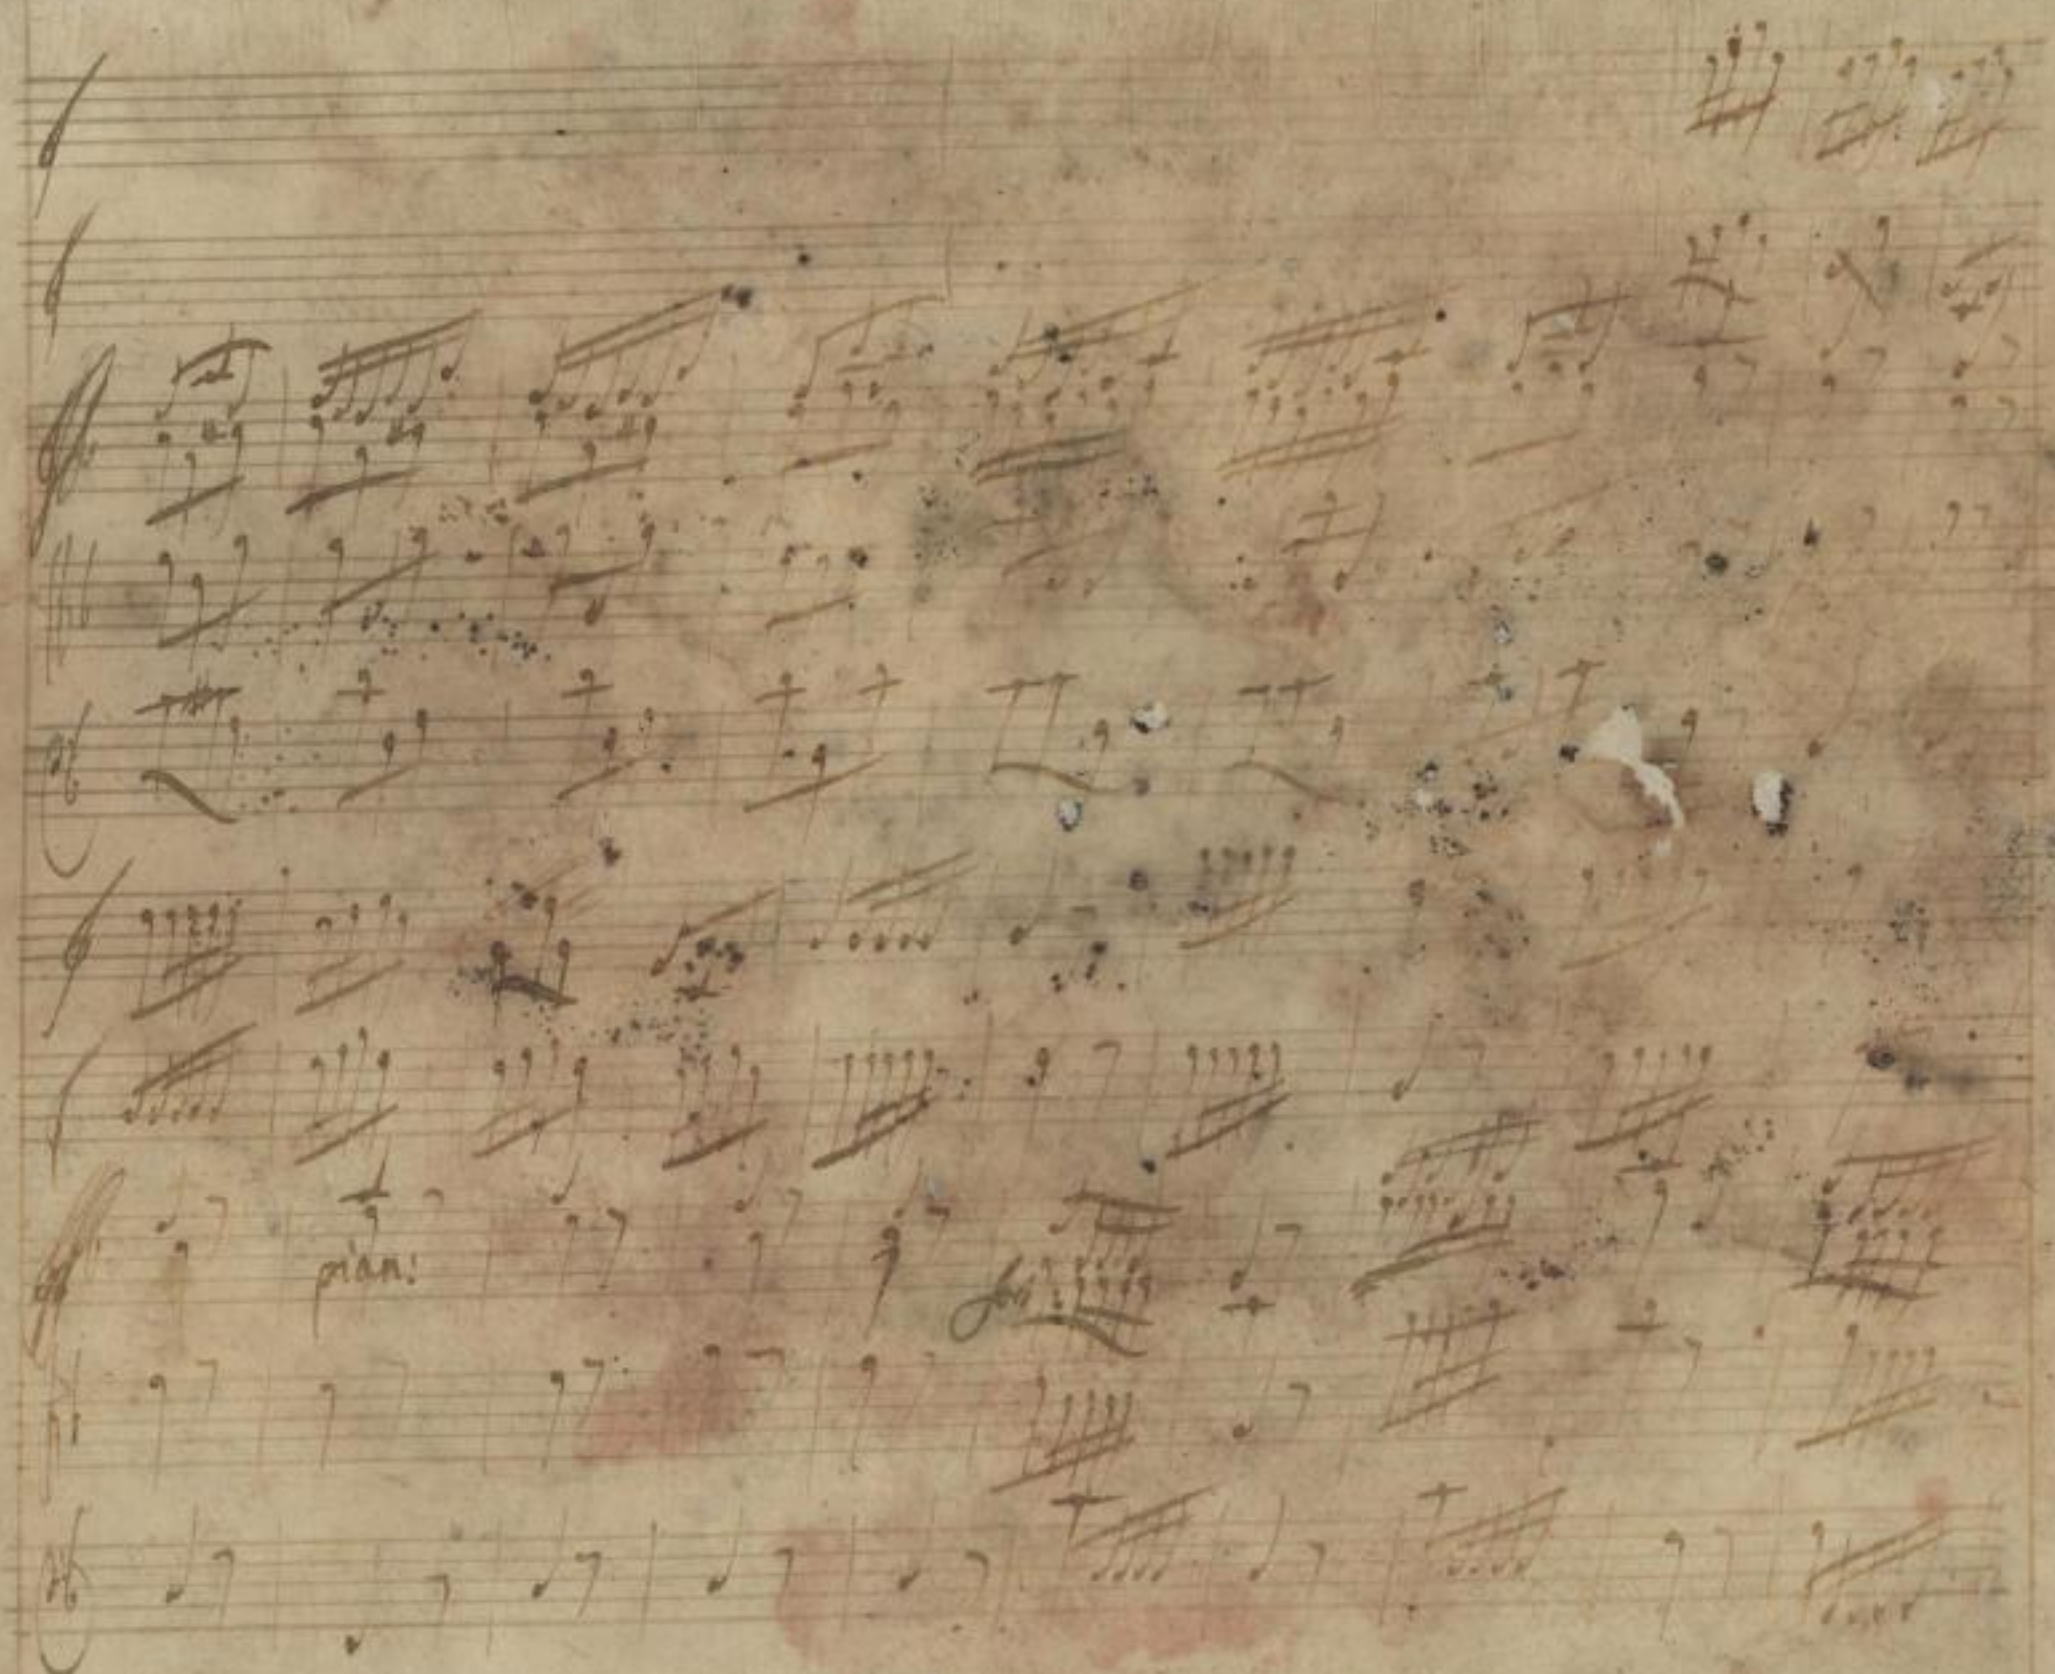 pian:
for: